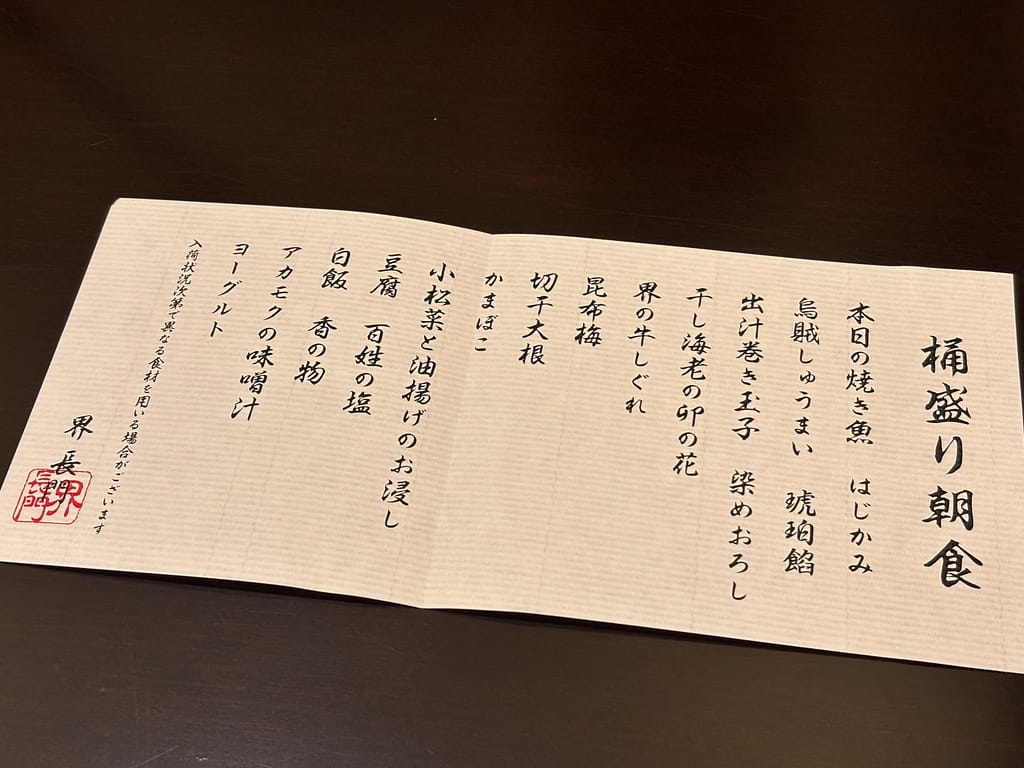 桶盛り朝食
本日の焼き魚　はじかみ
烏賊しゅうまい　琥珀餡
出汁巻き玉子　染めおろし
干し海老の卯の花
界の牛しぐれ
昆布梅
切干大根
かまぼこ
小松菜と油揚げのお浸し
豆腐　百姓の塩
白飯　香の物
アカモクの味噌汁
ヨーグルト
入荷状況次第で異なる食材を用いる場合がございます
界　長門
界長門